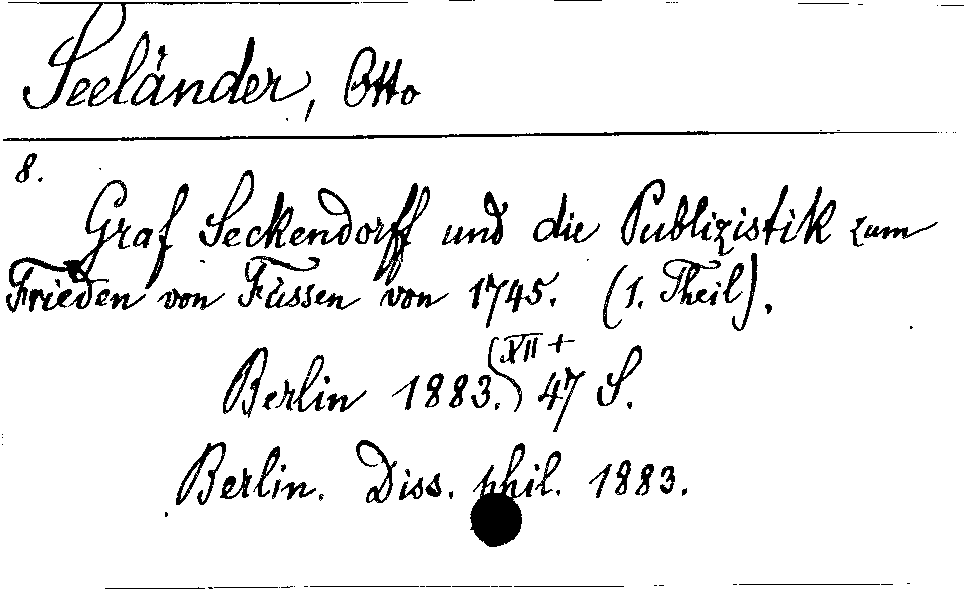 Seeländer, Otto
8.
Graf Seckendorff und die Publizistik zum
Frieden von Füssen von 1745. (1. Theil).
Berlin 1883. XII + 47 S.
Berlin. Diss. phil. 1883.